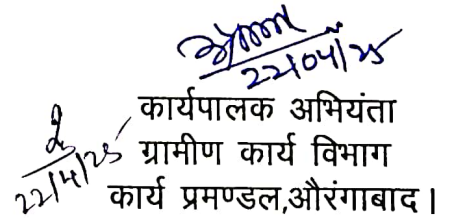 22/04/25
22/4/25
कार्यपालक अभियंता
ग्रामीण कार्य विभाग
कार्य प्रमण्डल,औरंगाबाद।